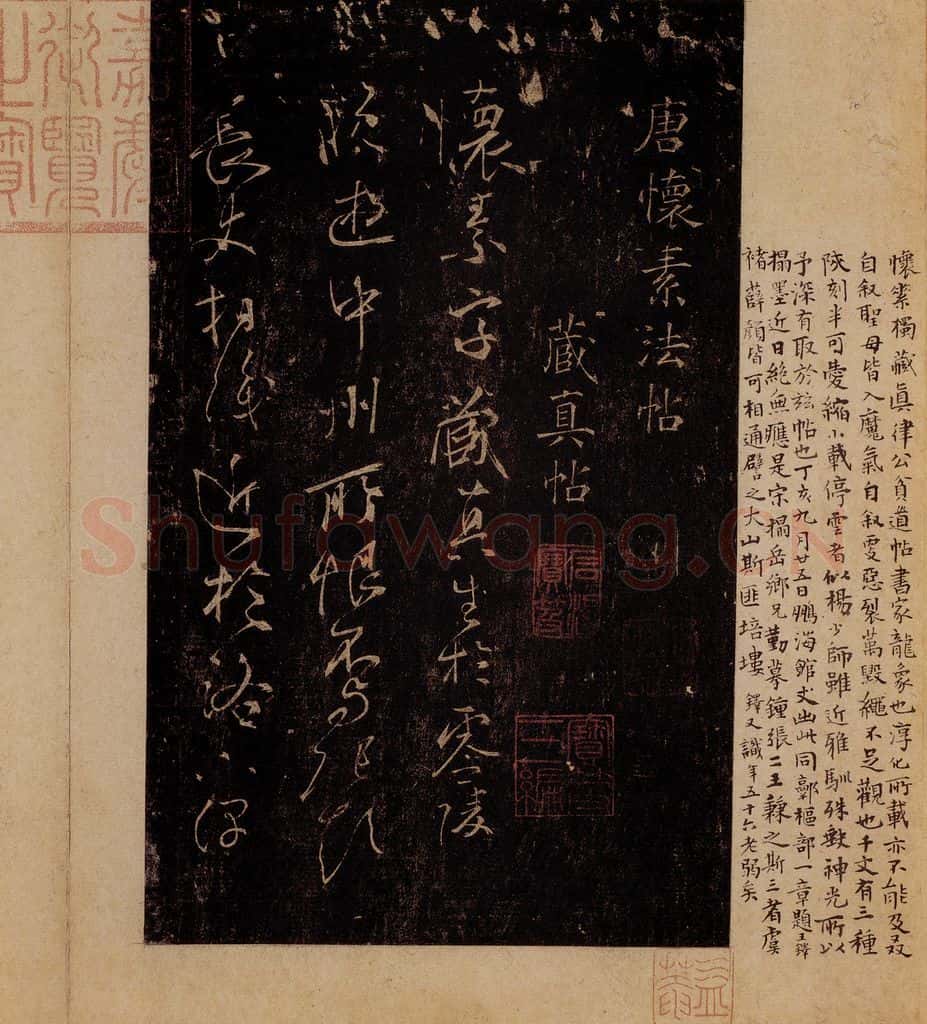 懷素獨藏眞律公貧道帖書家龍象也淳化所載亦不能及
自叙聖母皆入魔氣自叙更惡裂萬毀繩不足觀也千文有三種
陝刻半可愛縮小載停雲者似楊少師雖近雅馴殊神光所以
予深有取於玆帖也丁亥九月廿五日鵬海館丈出此同樞部一章題王鐸
搨墨近日絶無應是宋搨岳鄉兄勤摹鍾張二王兼之斯三者虞
褚薛顔皆可相通譬之大山斯匪培塿 鐸又識年五十六老弱矣
唐懷素法帖
藏真帖
寶笈三編
懷素字藏真生於零陵
晚遊中州所恨不与張顛
長史相識近於洛下得
嘉慶御覽之寶
Shufawang.CN